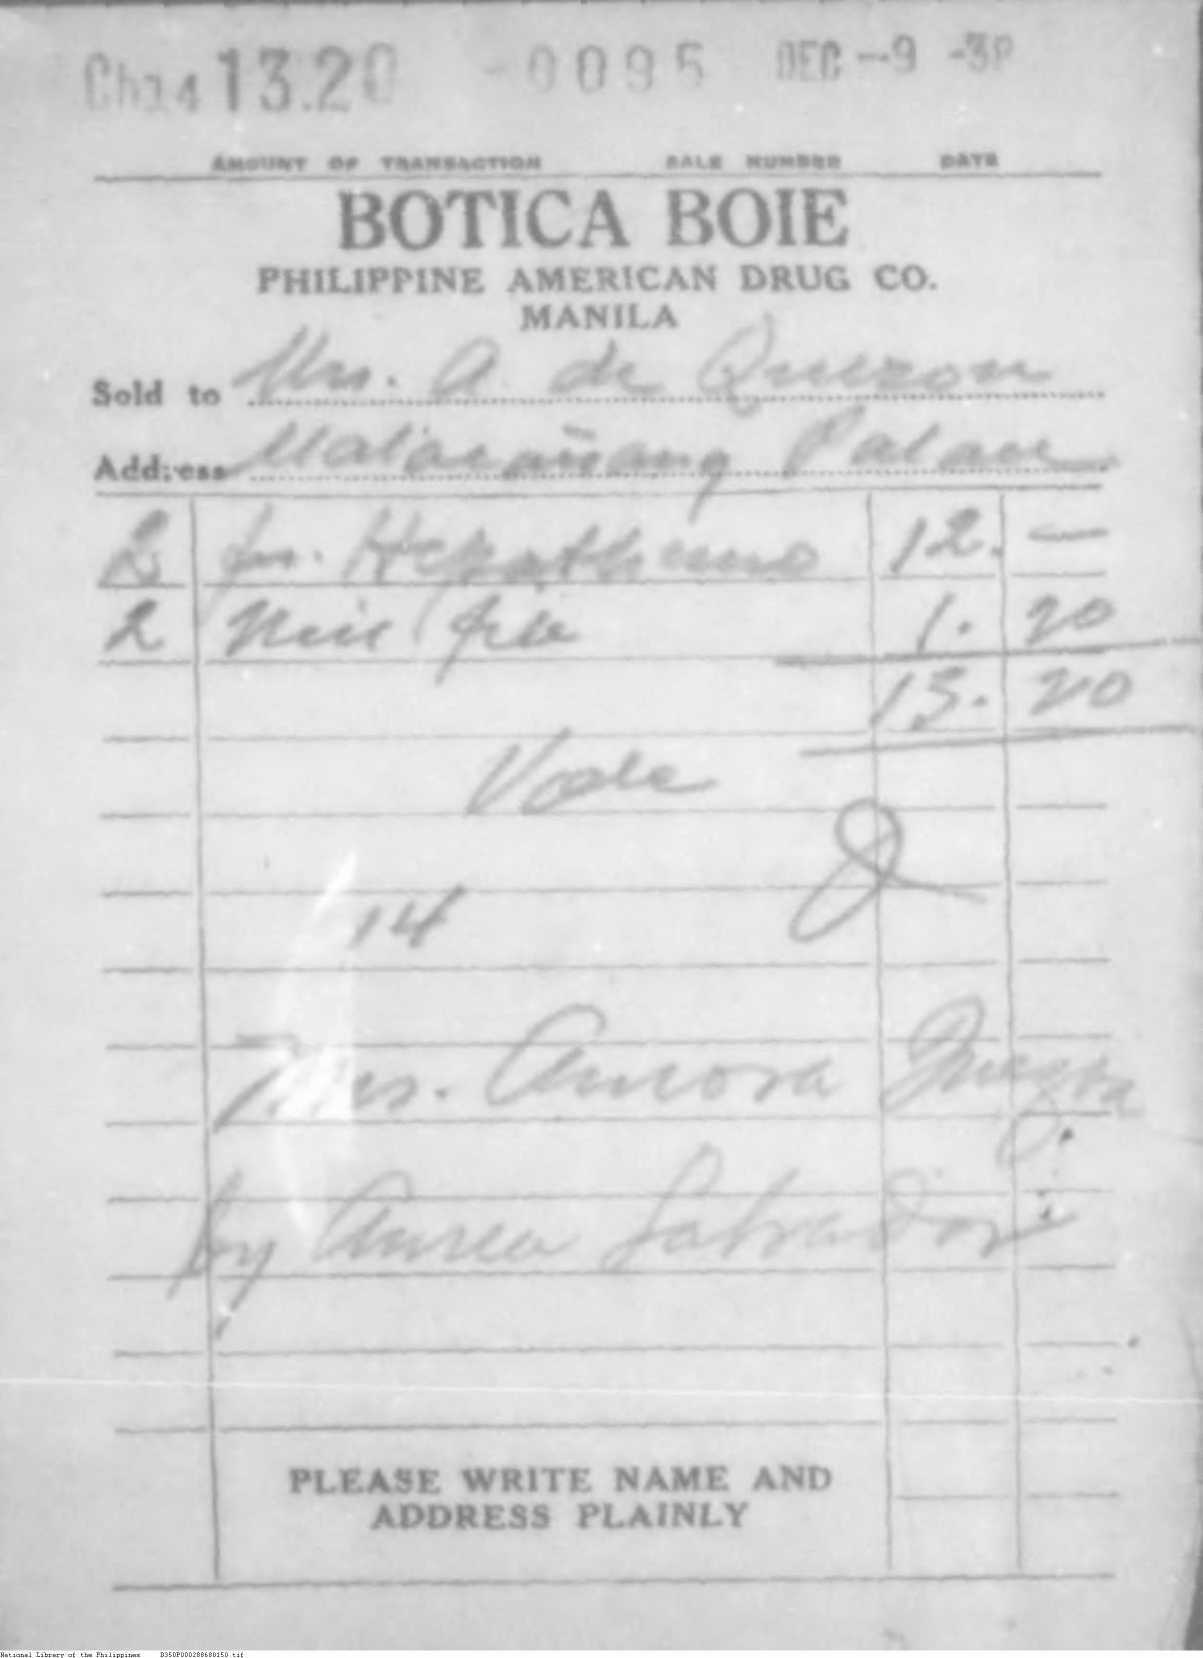 Ch14 13.20 -0095 DEC --9 -38
AMOUNT OF TRANSACTION SALE NUMBER DATE
BOTICA BOIE
PHILIPPINE AMERICAN DRUG CO.
MANILA
Sold to Mrs. A. de Quezon
Address Malacañang Palace
2 12. —
2 1. 20
13. 20
14
Mrs. Aurora Quezon
by Aurea Salvador
PLEASE WRITE NAME AND
ADDRESS PLAINLY
National Library of the Philippines D350P000288680150.tif